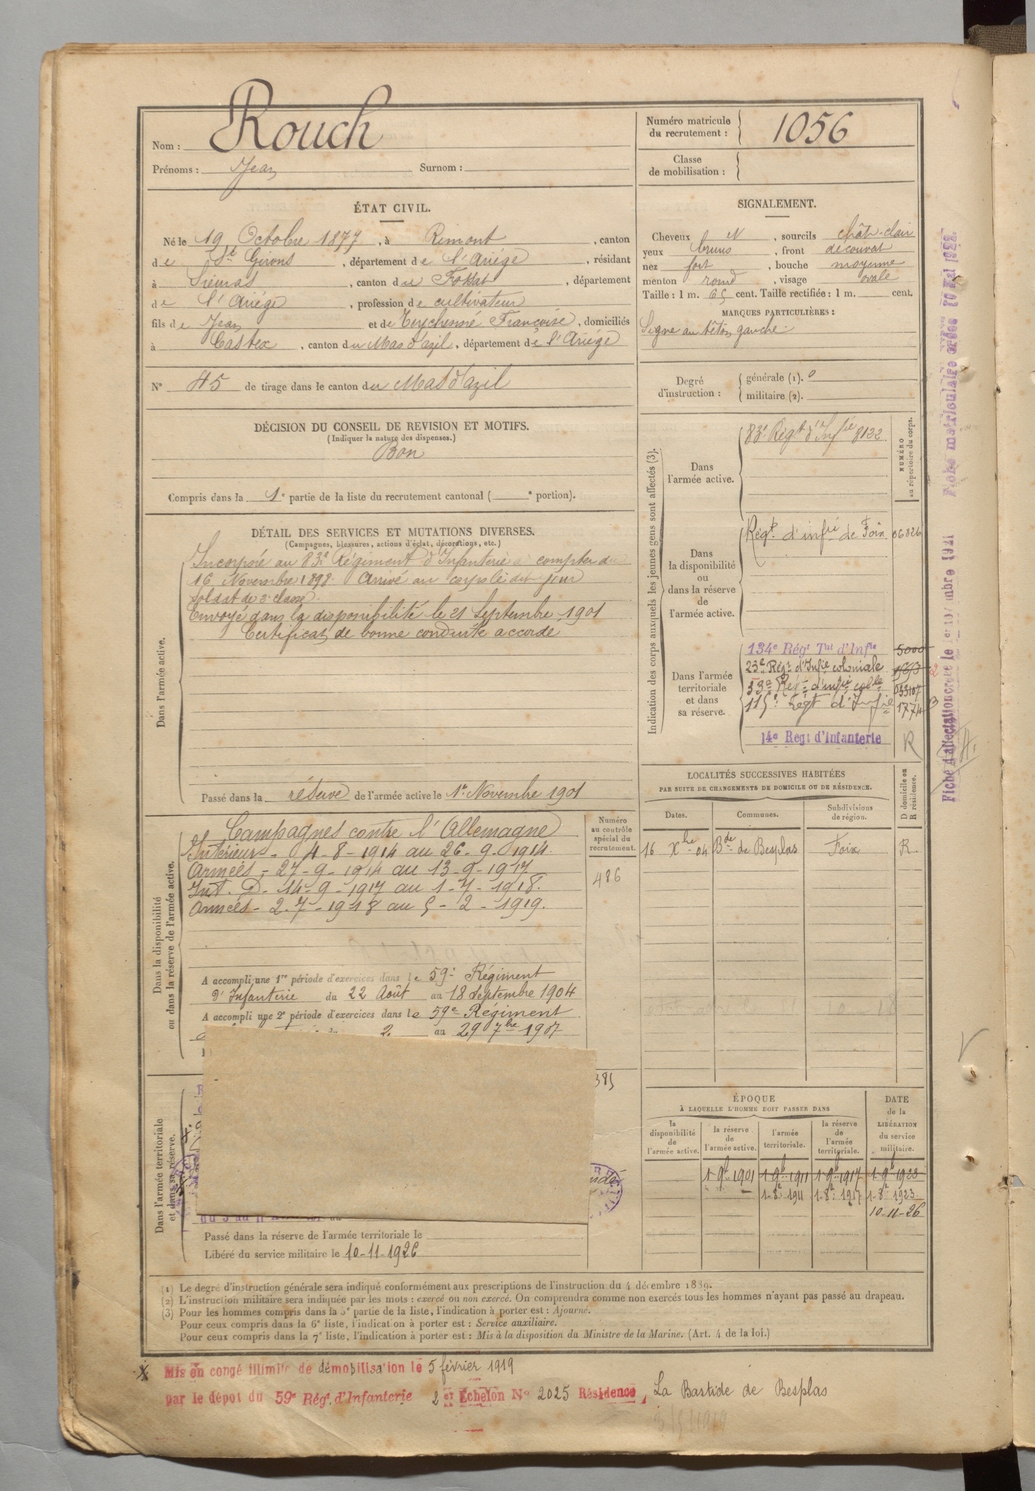 Nom : Rouch
Prénoms : Jean Surnom :
Numéro matricule du recrutement : 1056
Classe de mobilisation :
ÉTAT CIVIL.
Né le 19 Octobre 1877, à Rimont, canton
de St Girons, département de l'Ariège, résidant
à Sieuras, canton du Fossat, département
de l'Ariège, profession de cultivateur
fils de Jean et de Teychenné Françoise, domiciliés
à Castex, canton du Mas d'azil, département de l'Ariège
N° 45 de tirage dans le canton du Mas d'azil
SIGNALEMENT.
Cheveux N, sourcils chât. clair
yeux bruns, front découvert
nez fort, bouche moyenne
menton rond, visage ovale
Taille : 1 m. 65 cent. Taille rectifiée : 1 m. cent.
MARQUES PARTICULIÈRES :
Signe au téton gauche
Degré d'instruction : générale (1). 0
militaire (2).
DÉCISION DU CONSEIL DE REVISION ET MOTIFS.
(Indiquer la nature des dispenses.)
Bon
Compris dans la 1e partie de la liste du recrutement cantonal ( e portion).
DÉTAIL DES SERVICES ET MUTATIONS DIVERSES.
(Campagnes, blessures, actions d'éclat, décorations, etc.)
Dans l'armée active.
Incorporé au 83e Régiment d'Infanterie à compter du
16 Novembre 1898. Arrivé au corps le dit jour
soldat de 2e classe.
Envoyé dans la disponibilité le 21 Septembre 1901
Certificat de bonne conduite accordé
Passé dans la réserve de l'armée active le 1er Novembre 1901
Indication des corps auxquels les jeunes gens sont affectés (3).
NUMÉRO au répertoire du corps.
Dans l'armée active.
83e Régt d'Infie 8132
Dans la disponibilité ou dans la réserve de l'armée active.
Régt d'infie de Foix
Dans l'armée territoriale et dans sa réserve.
134e Régt Tal d'Infie 5000
23e Régt d'Infie coloniale
33e Régt d'infie colle
115e Régt d'Infie
14e Régt d'Infanterie R
LOCALITÉS SUCCESSIVES HABITÉES
PAR SUITE DE CHANGEMENTS DE DOMICILE OU DE RÉSIDENCE.
Dates. Communes. Subdivisions de région. D domicile ou R résidence.
16 Xbre 04 Bde de Besplas Foix R
Dans la disponibilité ou dans la réserve de l'armée active.
Numéro au contrôle spécial du recrutement.
486
Campagnes contre l'Allemagne
Intérieur - 4-8-1914 au 26-9-1914
Armées - 27-9-1914 au 13-9-1917
Int. D. 14-9-1917 au 1-7-1918.
Armées - 2-7-1918 au 5-2-1919.
A accompli une 1re période d'exercices dans le 59e Régiment
d'Infanterie du 22 Août au 18 Septembre 1904
A accompli une 2e période d'exercices dans le 59e Régiment
2 au 29 7bre 1907
385
Dans l'armée territoriale et dans sa réserve.
Passé dans la réserve de l'armée territoriale le
Libéré du service militaire le 10-11-1926
ÉPOQUE
À LAQUELLE L'HOMME DOIT PASSER DANS
la disponibilité de l'armée active. la réserve de l'armée active. l'armée territoriale. la réserve de l'armée territoriale.
DATE de la LIBÉRATION du service militaire.
1-9bre 1901 1-9bre 1911 1-9bre 1917 1-9bre 1923
1-8bre 1911 1-8bre 1917 1-8bre 1923
10-11-26
(1) Le degré d'instruction générale sera indiqué conformément aux prescriptions de l'instruction du 4 décembre 1889.
(2) L'instruction militaire sera indiquée par les mots : exercé ou non exercé. On comprendra comme non exercés tous les hommes n'ayant pas passé au drapeau.
(3) Pour les hommes compris dans la 5e partie de la liste, l'indication à porter est : Ajourné.
Pour ceux compris dans la 6e liste, l'indication à porter est : Service auxiliaire.
Pour ceux compris dans la 7e liste, l'indication à porter est : Mis à la disposition du Ministre de la Marine. (Art. 4 de la loi.)
Mis en congé illimité de démobilisation le 5 février 1919
par le dépôt du 59e Rég. d'Infanterie 2 er Echelon N° 2025 Résidence, La Bastide de Besplas